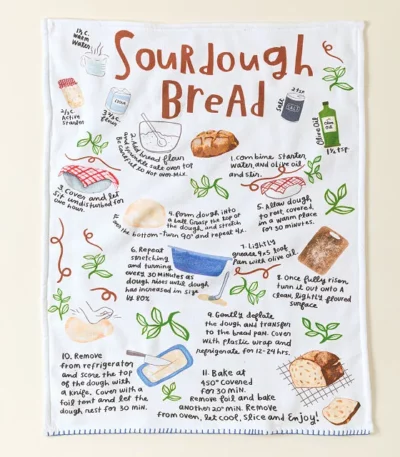 SourDough
BreaD
1½ c.
warm
water
2/3 c.
Active
Starter
flour
Salt
SALT
Olive Oil
2. Add bread flour
and sprinkle salt over top
Be careful to not over-mix.
1. Combine starter,
water, and olive oil,
and stir.
3. Cover and let
sit undisturbed for
one hour.
4. Form dough into
a ball. Grasp the top of
the dough, and stretch
the bottom-turn 90° and repeat 4x.
5. Allow dough
to rest, covered
in a warm place
for 30 minutes.
6. Repeat
stretching
and turning
every 30 minutes as
dough rises until dough
has increased in size
by 80%
7. Lightly
grease 9x5 loaf
Pan with olive oil.
8. Once fully risen
turn it out onto a
clean, lightly floured
surface
9. Gently deflate
the dough and transfer
to the bread pan. Cover
with plastic wrap and
refrigerate for 12-24 hrs.
10. Remove
from refrigerator
and score the top
of the dough with
a knife. Cover with a
foil tent and let the
dough rest for 30 min.
11. Bake at
450° covered
for 30 min.
Remove foil and bake
another 20 min. Remove
from oven, let cool, slice and Enjoy!